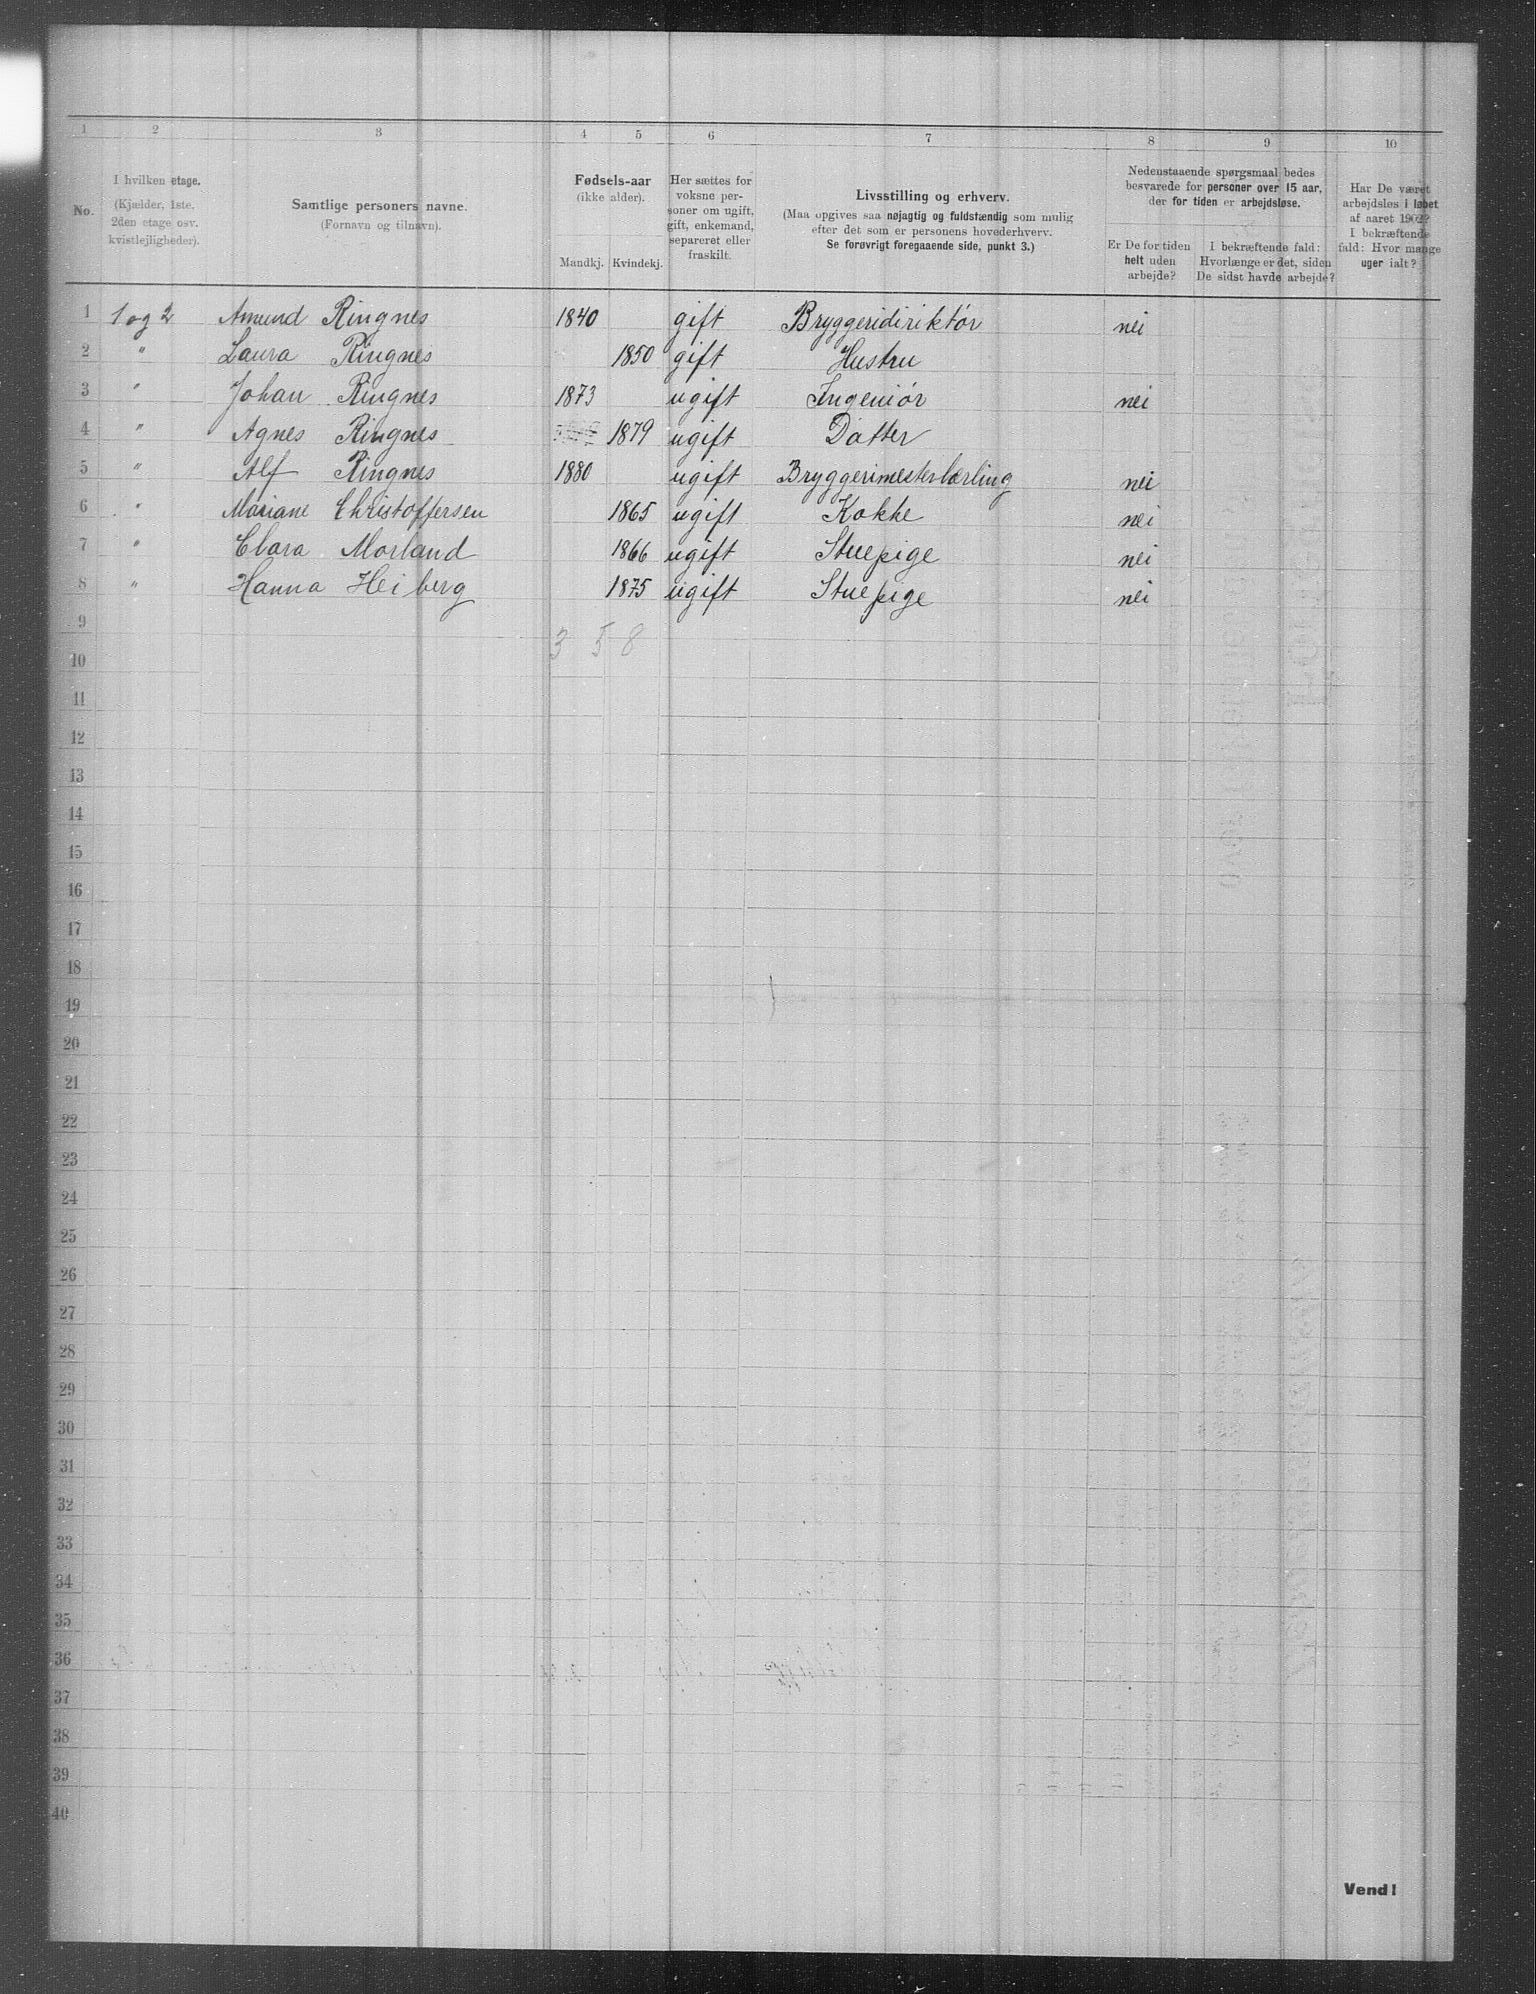 1 2 3 4 5 6 7 8 9 10
No.
I hvilken etage.
(Kjælder, 1ste.
2den etage osv.
kvistlejligheder).
Samtlige personers navne.
(Fornavn og tilnavn).
Fødsels-aar
(ikke alder).
Mandkj. Kvindekj.
Her sættes for
voksne per-
soner om ugift,
gift, enkemand,
separeret eller
fraskilt.
Livsstilling og erhverv.
(Maa opgives saa nøjagtig og fuldstændig som mulig
efter det som er personens hovederhverv.
Se forøvrigt foregaaende side, punkt 3.)
Nedenstaaende spørgsmaal bedes
besvarede for personer over 15 aar,
der for tiden er arbejdsløse.
Er De for tiden
helt uden
arbejde?
I bekræftende fald:
Hvorlænge er det, siden
De sidst havde arbejde?
Har De været
arbejdsløs i løbet
af aaret 1902?
I bekræftende
fald: Hvor mange
uger ialt?
1 1 og 2 Amund Ringnes 1840 gift Bryggeridiriktør nei
2 " Laura Ringnes 1850 gift Hustru
3 " Johan Ringnes 1873 ugift Ingeniør nei
4 " Agnes Ringnes 1879 ugift Datter
5 " Alf Ringnes 1880 ugift Bryggerimesterlærling nei
6 " Mariane Christoffersen 1865 ugift Kokke nei
7 " Clara Morland 1866 ugift Stuepige nei
8 " Hanna Heiberg 1875 ugift Stuepige nei
9
3 5 8
10
11
12
13
14
15
16
17
18
19
20
21
22
23
24
25
26
27
28
29
30
31
32
33
34
35
36
37
38
39
40
Vend!